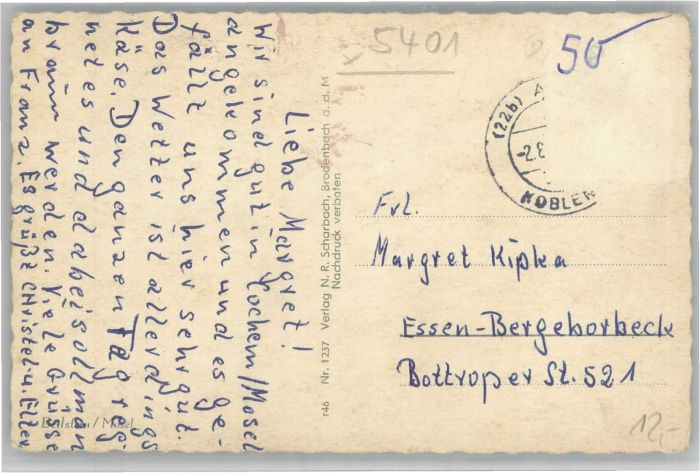 Liebe Margret!
Wir sind gut in Cochem/Mosel
angekommen und es ge-
fällt uns hier sehr gut.
Das Wetter ist allerdings
Käse. Den ganzen Tag reg-
net es und dabei soll man
braun werden. Viele Grüsse
an Franz. Es grüßt Christel u. Ellen
/ Mosel
r46 Nr. 1237 Verlag N. R. Scharbach, Brodenbach d. d. M
Nachdruck verboten
5401
50
(22b)
-2.8
KOBLEN
Frl.
Margret Kipka
Essen-Bergeborbeck
Bottroper St. 521
12,-